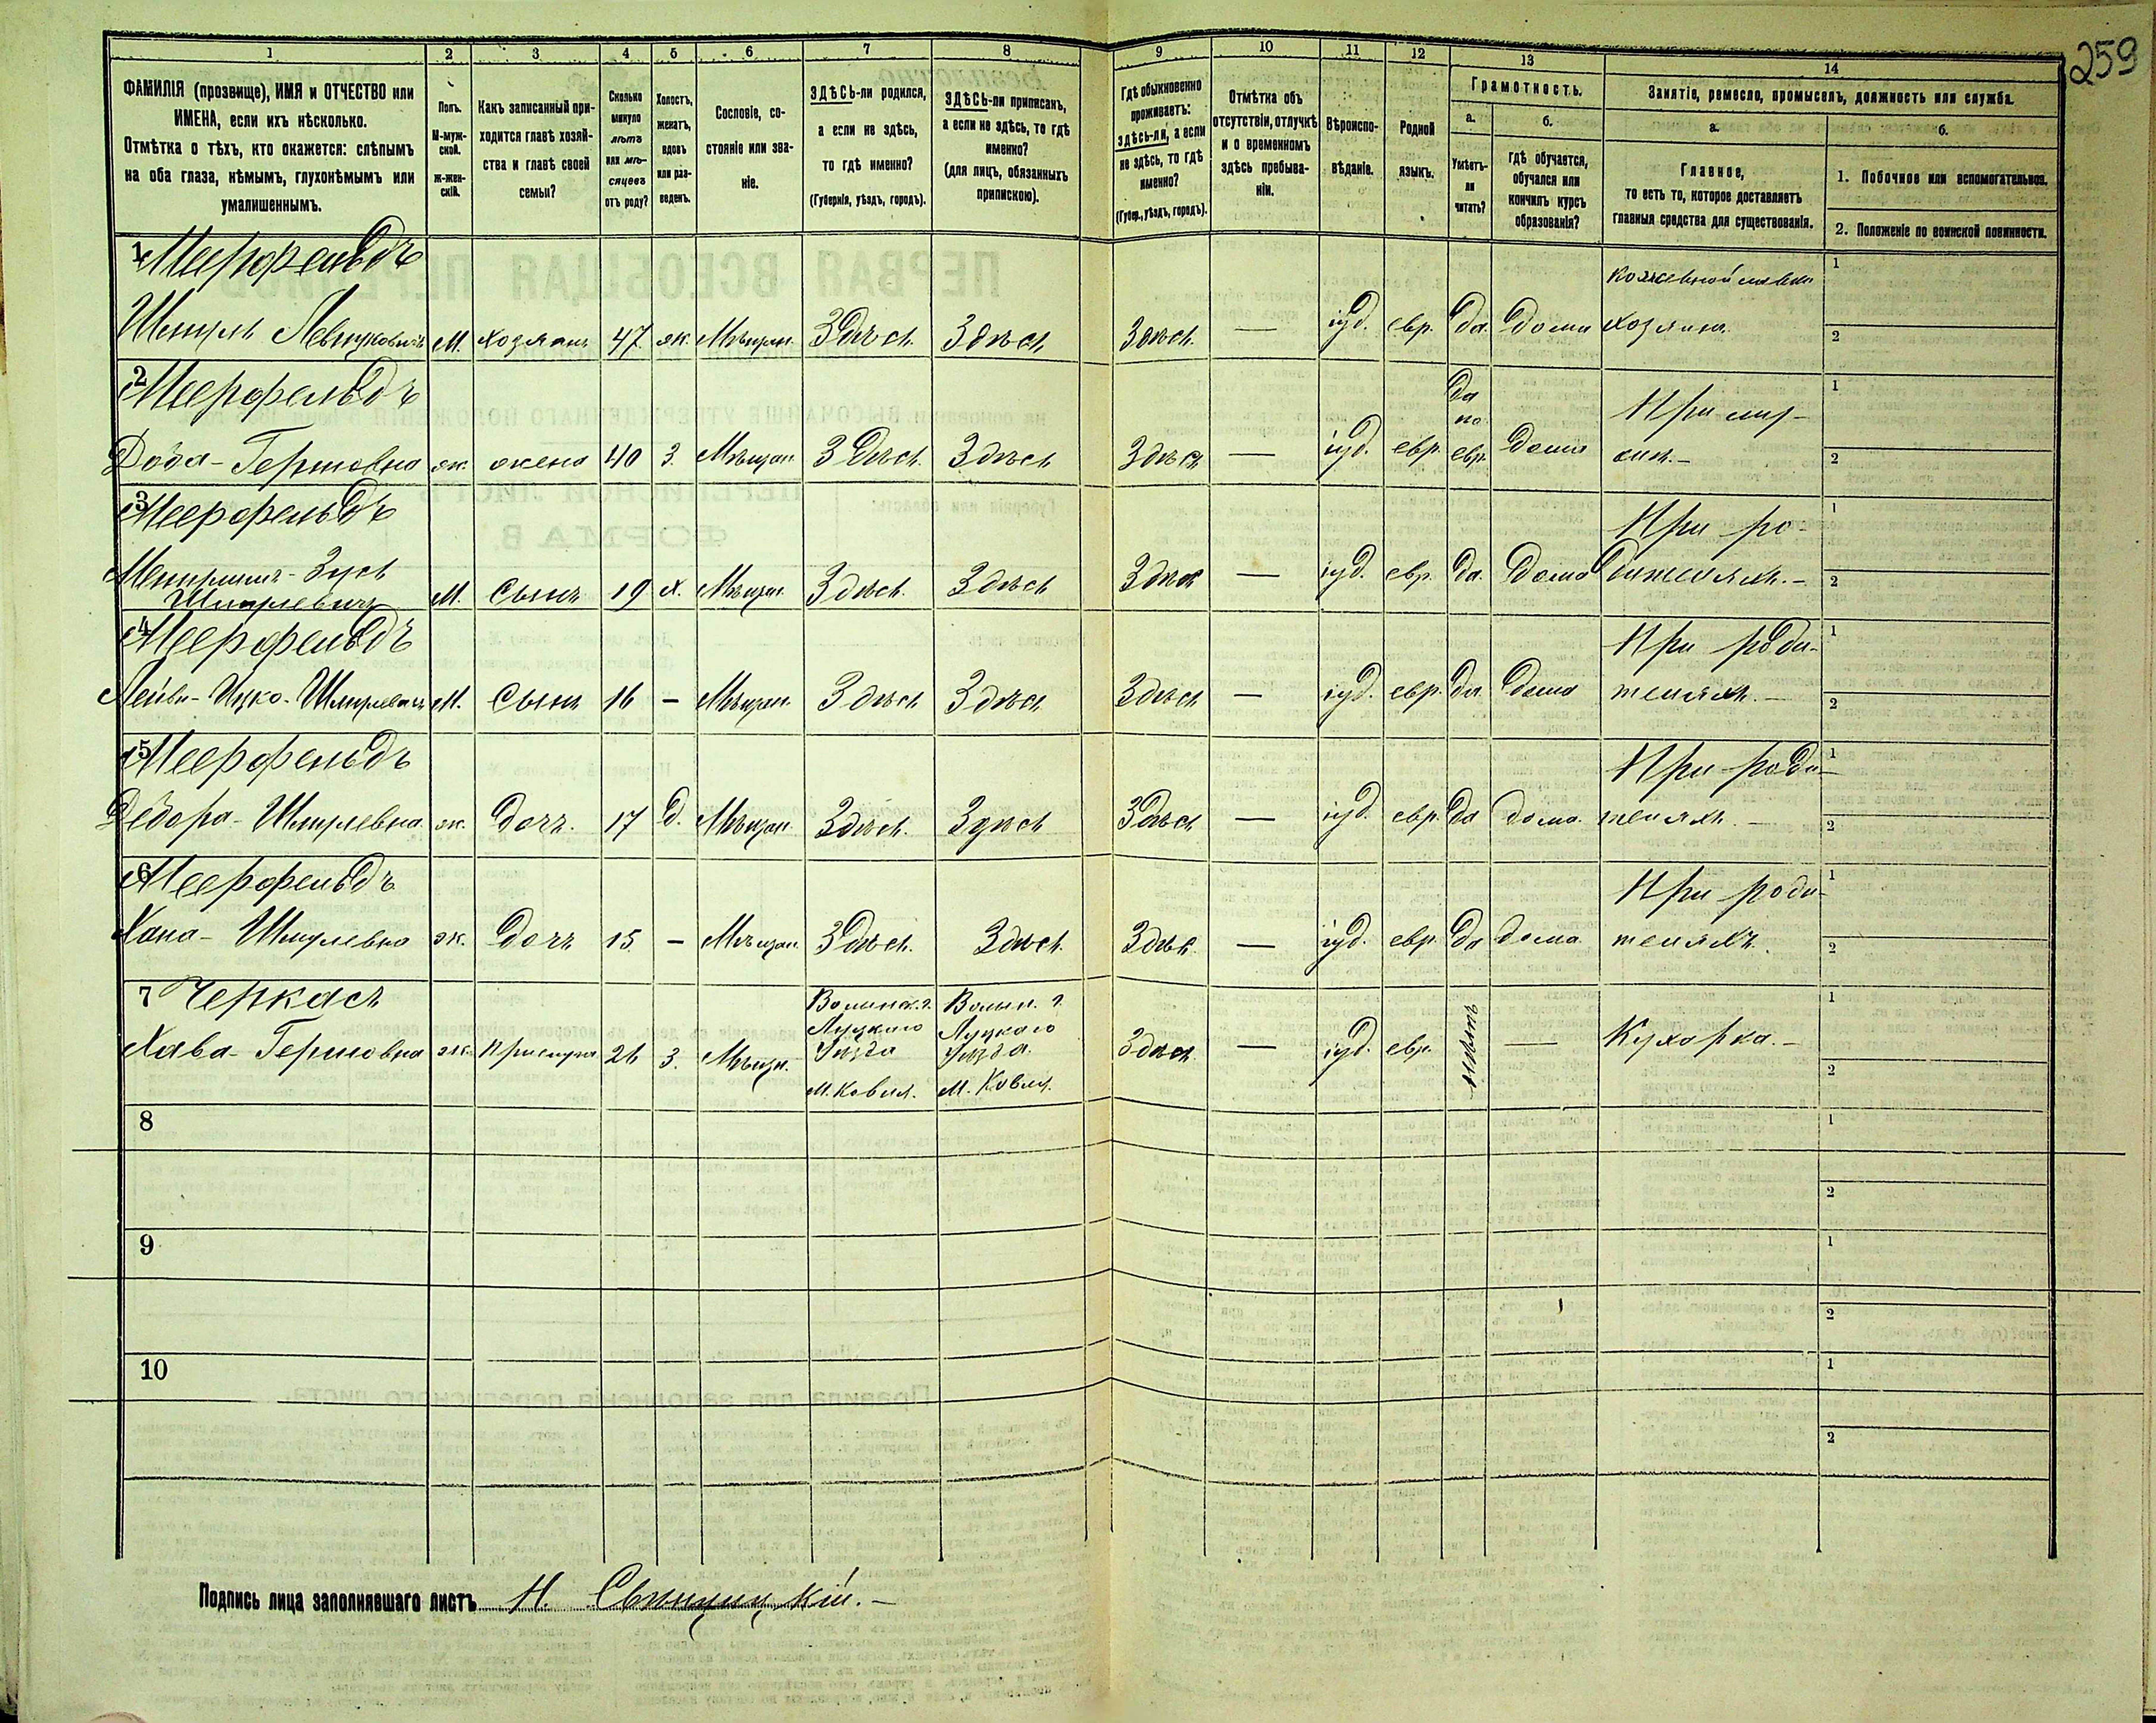 259
1 2 3 4 5 6 7 8 9 10 11 12 13 14
ФАМИЛІЯ (прозвище), ИМЯ и ОТЧЕСТВО или
ИМЕНА, если ихъ нѣсколько.
Отмѣтка о тѣхъ, кто окажется: слѣпымъ
на оба глаза, нѣмымъ, глухонѣмымъ или
умалишеннымъ.
Полъ.
М-муж-
ской.
Ж-жен-
скій.
Какъ записанный при-
ходится главѣ хозяй-
ства и главѣ своей
семьи?
Сколько
минуло
лѣтъ
или мѣ-
сяцевъ
отъ роду?
Холостъ,
женатъ,
вдовъ
или раз-
веденъ.
Сословіе, со-
стояніе или зва-
ніе.
ЗДѢСЬ-ли родился,
а если не здѣсь,
то гдѣ именно?
(Губернія, уѣздъ, городъ).
ЗДѢСЬ-ли приписанъ,
а если не здѣсь, то гдѣ
именно?
(для лицъ, обязанныхъ
припискою).
Гдѣ обыкновенно
проживаетъ:
здѣсь-ли, а если
не здѣсь, то гдѣ
именно?
(Губер., уѣздъ, городъ).
Отмѣтка объ
отсутствіи, отлучкѣ
и о временномъ
здѣсь пребыва-
ніи.
Вѣроиспо-
вѣданіе.
Родной
языкъ.
Грамотность.
а.
Умѣетъ-
ли
читать?
б.
гдѣ обучается,
обучался или
кончилъ курсъ
образованія?
Занятіе, ремесло, промыселъ, должность или служба.
а.
Главное,
то есть то, которое доставляетъ
главныя средства для существованія.
б.
1. Побочное или вспомогательное.
2. Положеніе по воинской повинности.
1 Меерфельдъ
кожевной лавки 1
Шмуль М. хозяинъ 47 ж. Мѣщан. Здѣсь Здѣсь Здѣсь — іуд. евр. да дома хозяинъ. 2
2 Меерфельдъ да по При муж- 1
Гершовна ж. жена 40 З. Мѣщан. Здѣсь Здѣсь Здѣсь — іуд. евр. евр. дома 2
3 Меерфельдъ При ро- 1
Зусь
Шмулевичъ М. Сынъ 19 х. Мѣщан. Здѣсь Здѣсь Здѣсь — іуд. евр. да. дома дителяхъ.— 2
4 Меерфельдъ При роди- 1
Лейви-Ицко-Шмулевичъ М. Сынъ 16 — Мѣщан. Здѣсь Здѣсь Здѣсь — іуд. евр. да дома теляхъ.— 2
5 Меерфельдъ При роди- 1
Дебора-Шмулевна ж. дочь. 17 д. Мѣщан. Здѣсь. Здѣсь Здѣсь — іуд. евр. да дома. теляхъ.— 2
6 Меерфельдъ При роди- 1
Хана-Шмулевна ж. дочь 15 — Мѣщан. Здѣсь. Здѣсь. Здѣсь — іуд. евр. да дома теляхъ. 2
7 Черкасъ Волынск. г. Волын. г. 1
Луцкаго Луцкаго
Хава-Гершовна ж. Прислуга 26 З. Мѣщан. Уѣзда Уѣзда Здѣсь — іуд. евр. нѣтъ — Кухарка.— 2
М. Ковля. М. Ковля.
8 1
2
9 1
2
10 1
2
Подпись лица заполнявшаго листъ